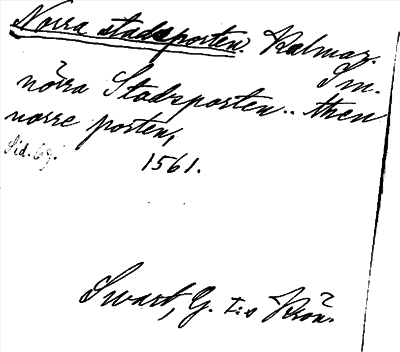 Norra stadsporten. Kalmar.
Sm.
nörra Stadsporten .. then
norre porten,
Sid. 69. 1561.
Swart, G. I:s Krön.